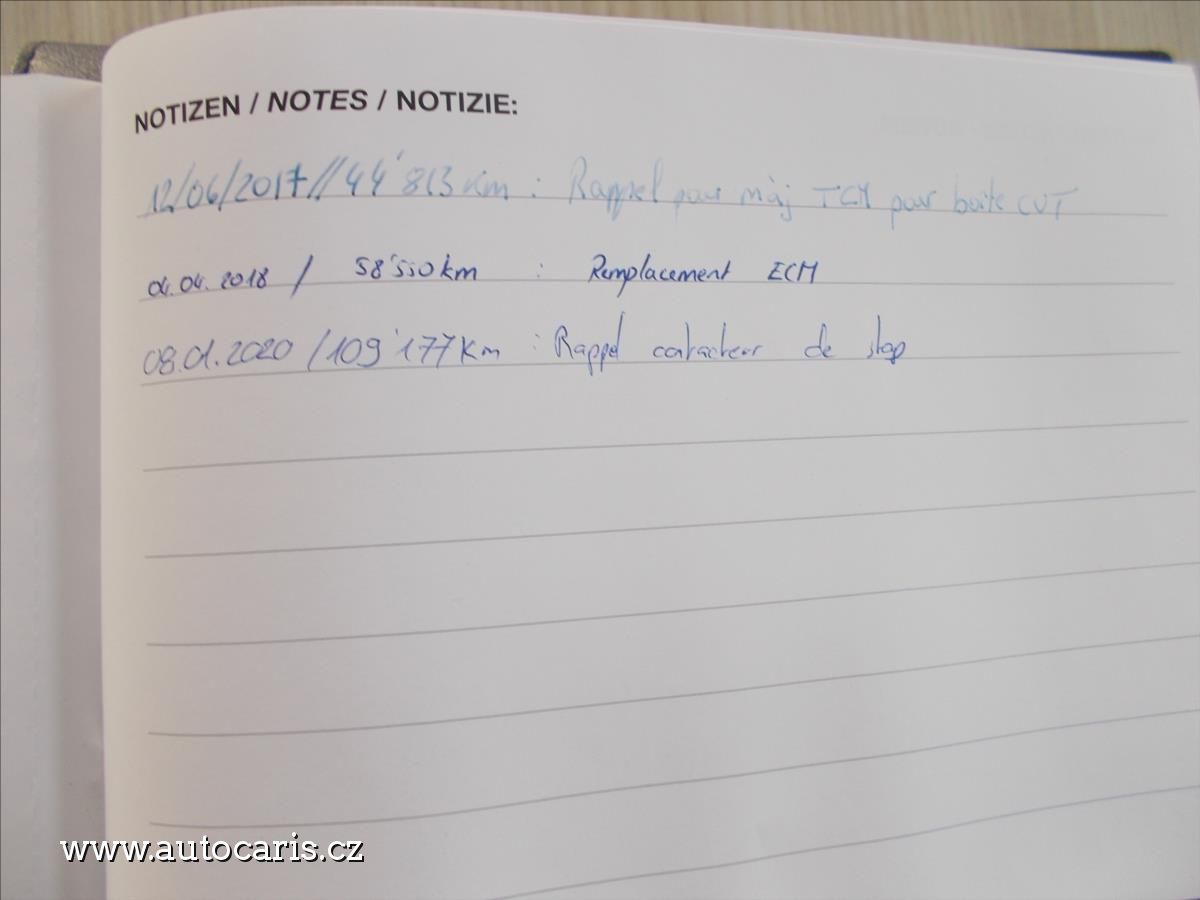 NOTIZEN / NOTES / NOTIZIE:
12/06/2017//44'813 Km : Rappel pour màj TCM pour boite CVT
04.04.2018 / 58'550 km : Remplacement ECM
08.01.2020 / 109'177 Km : Rappel contacteur de stop
www.autocaris.cz